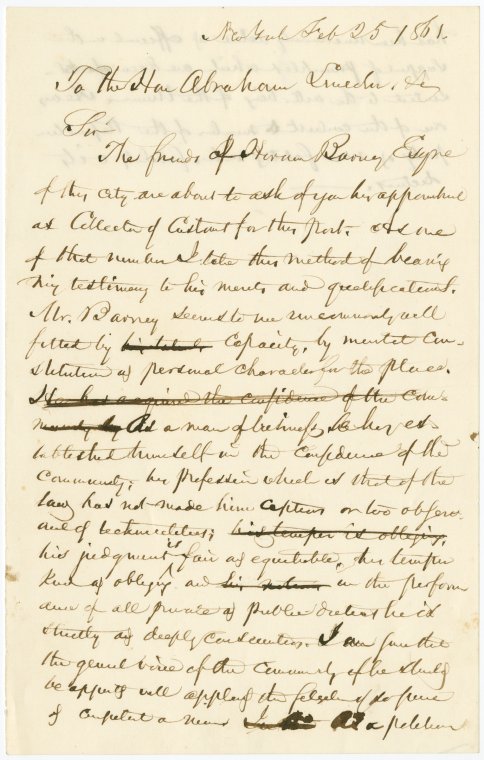 New York Feb 25 1861.
To the Hon Abraham Lincoln, &c
Sir
The friends of Hiram Barney Esqre
of this city are about to ask of you his appointment
as Collector of Customs for this Port. As one
of that number I take this method of bearing
my testimony to his merits and qualifications.
Mr. Barney seems to me uncommonly well
fitted by capacity, by mental con-
stitution & personal character for the place.
He has acquired the confidence of the com-
munity by As a man of business he has es-
tablished himself in the confidence of the
community; his profession which is that of the
law has not made him captious or too observ-
ant of technicalities; his temper is obliging,
his judgment is fair & equitable, his temper
kind & obliging and in the perform
ance of all private & public duties he is
strictly & deeply conscientious. I am sure that
the general voice of the community if he should
be appointed will applaud the selection of so pure
& competent a man As a politician